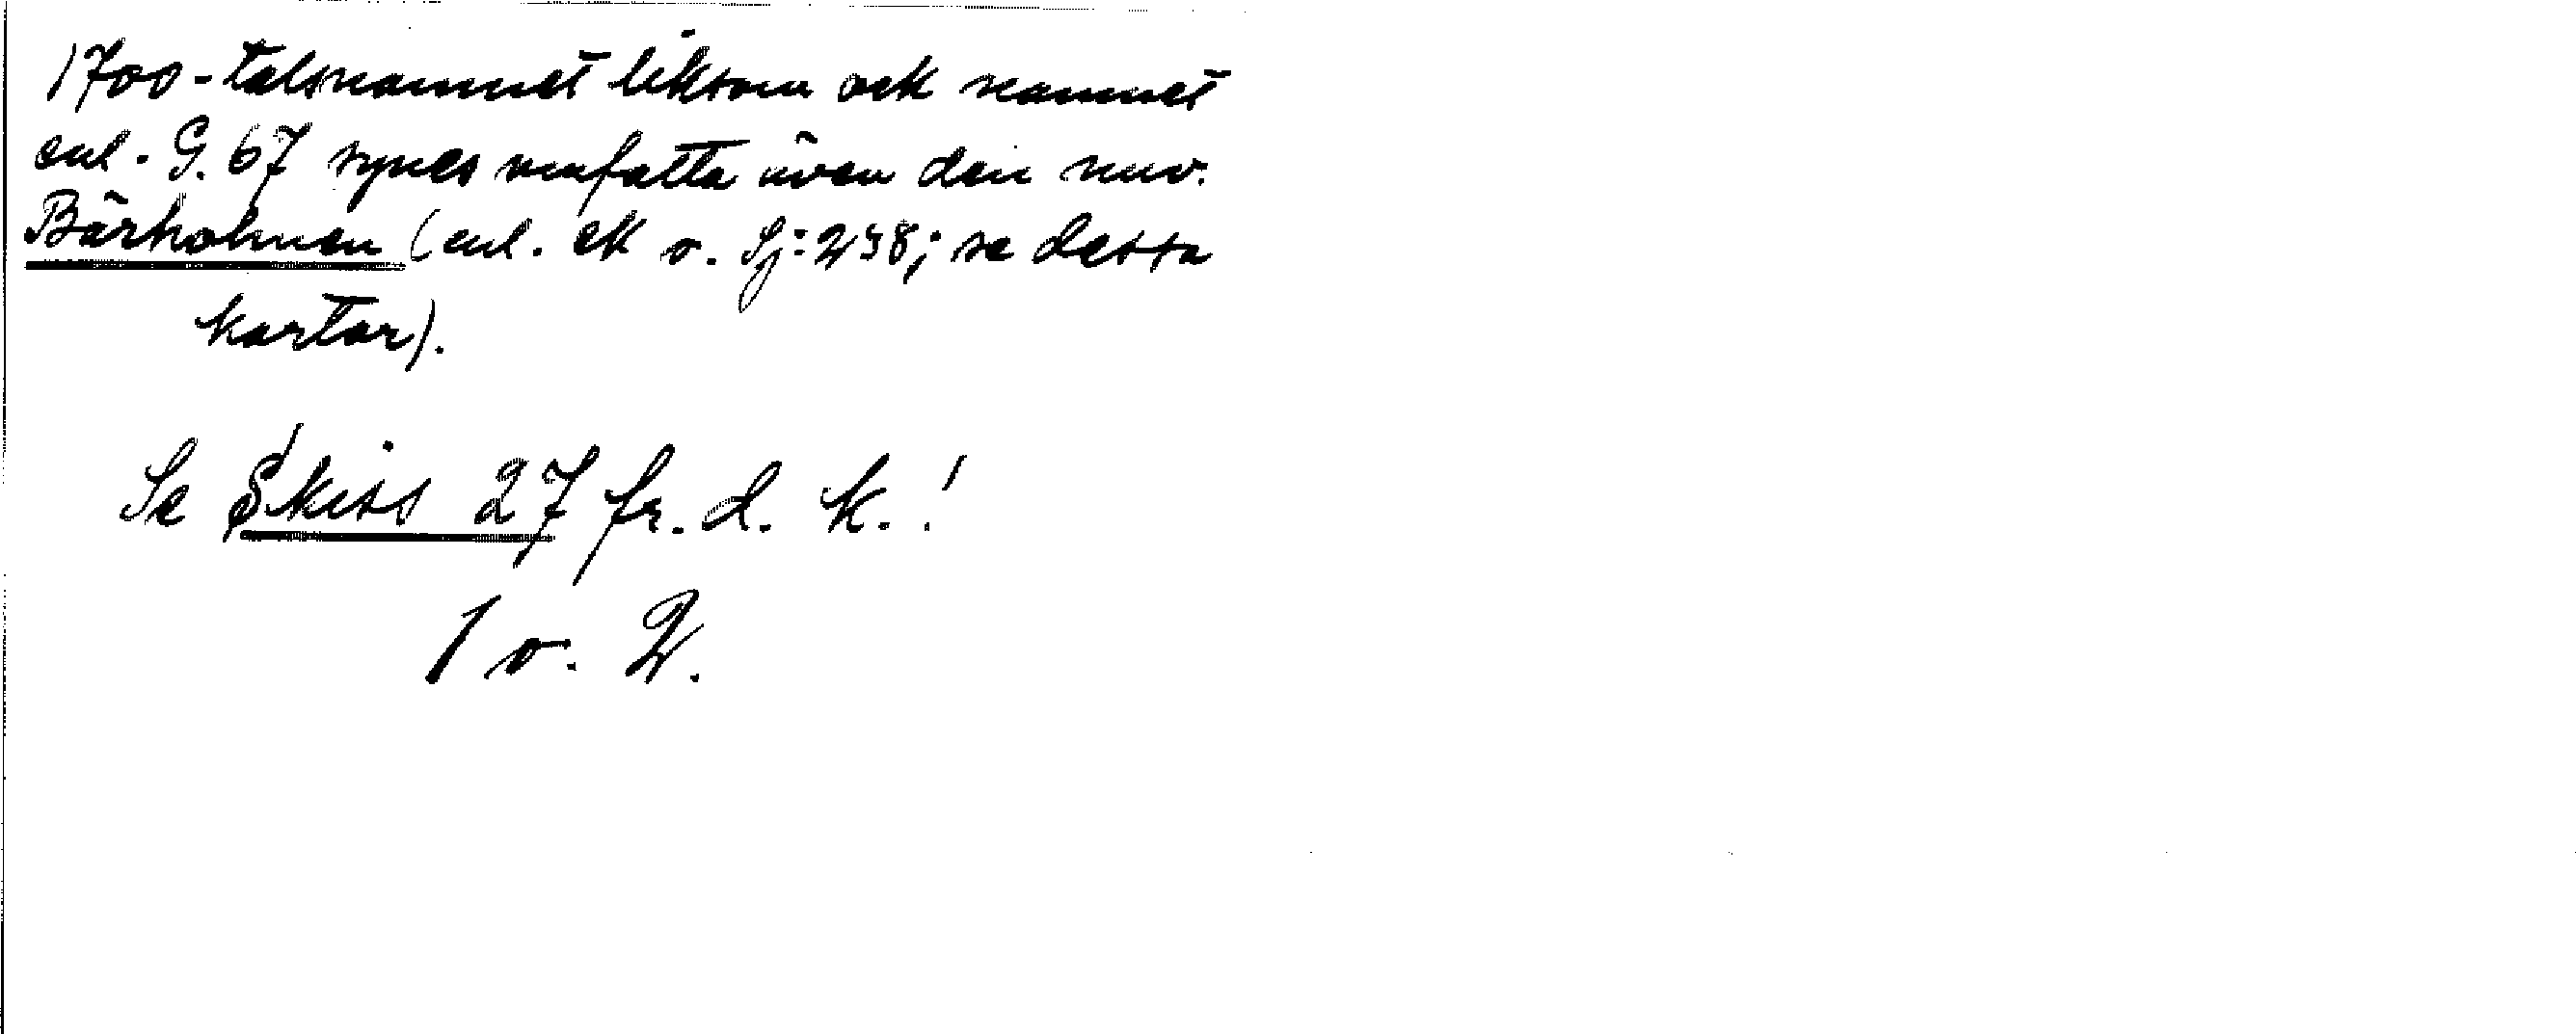 1700-talsnamnet liksom ock namnet
enl. G. 67 synes omfatta även den nuv.
Bärholmen (enl. ek o. Sj: 238; se dessa
kartor).
Se Skiss 27 fr. d. k.!
1 o. 2.